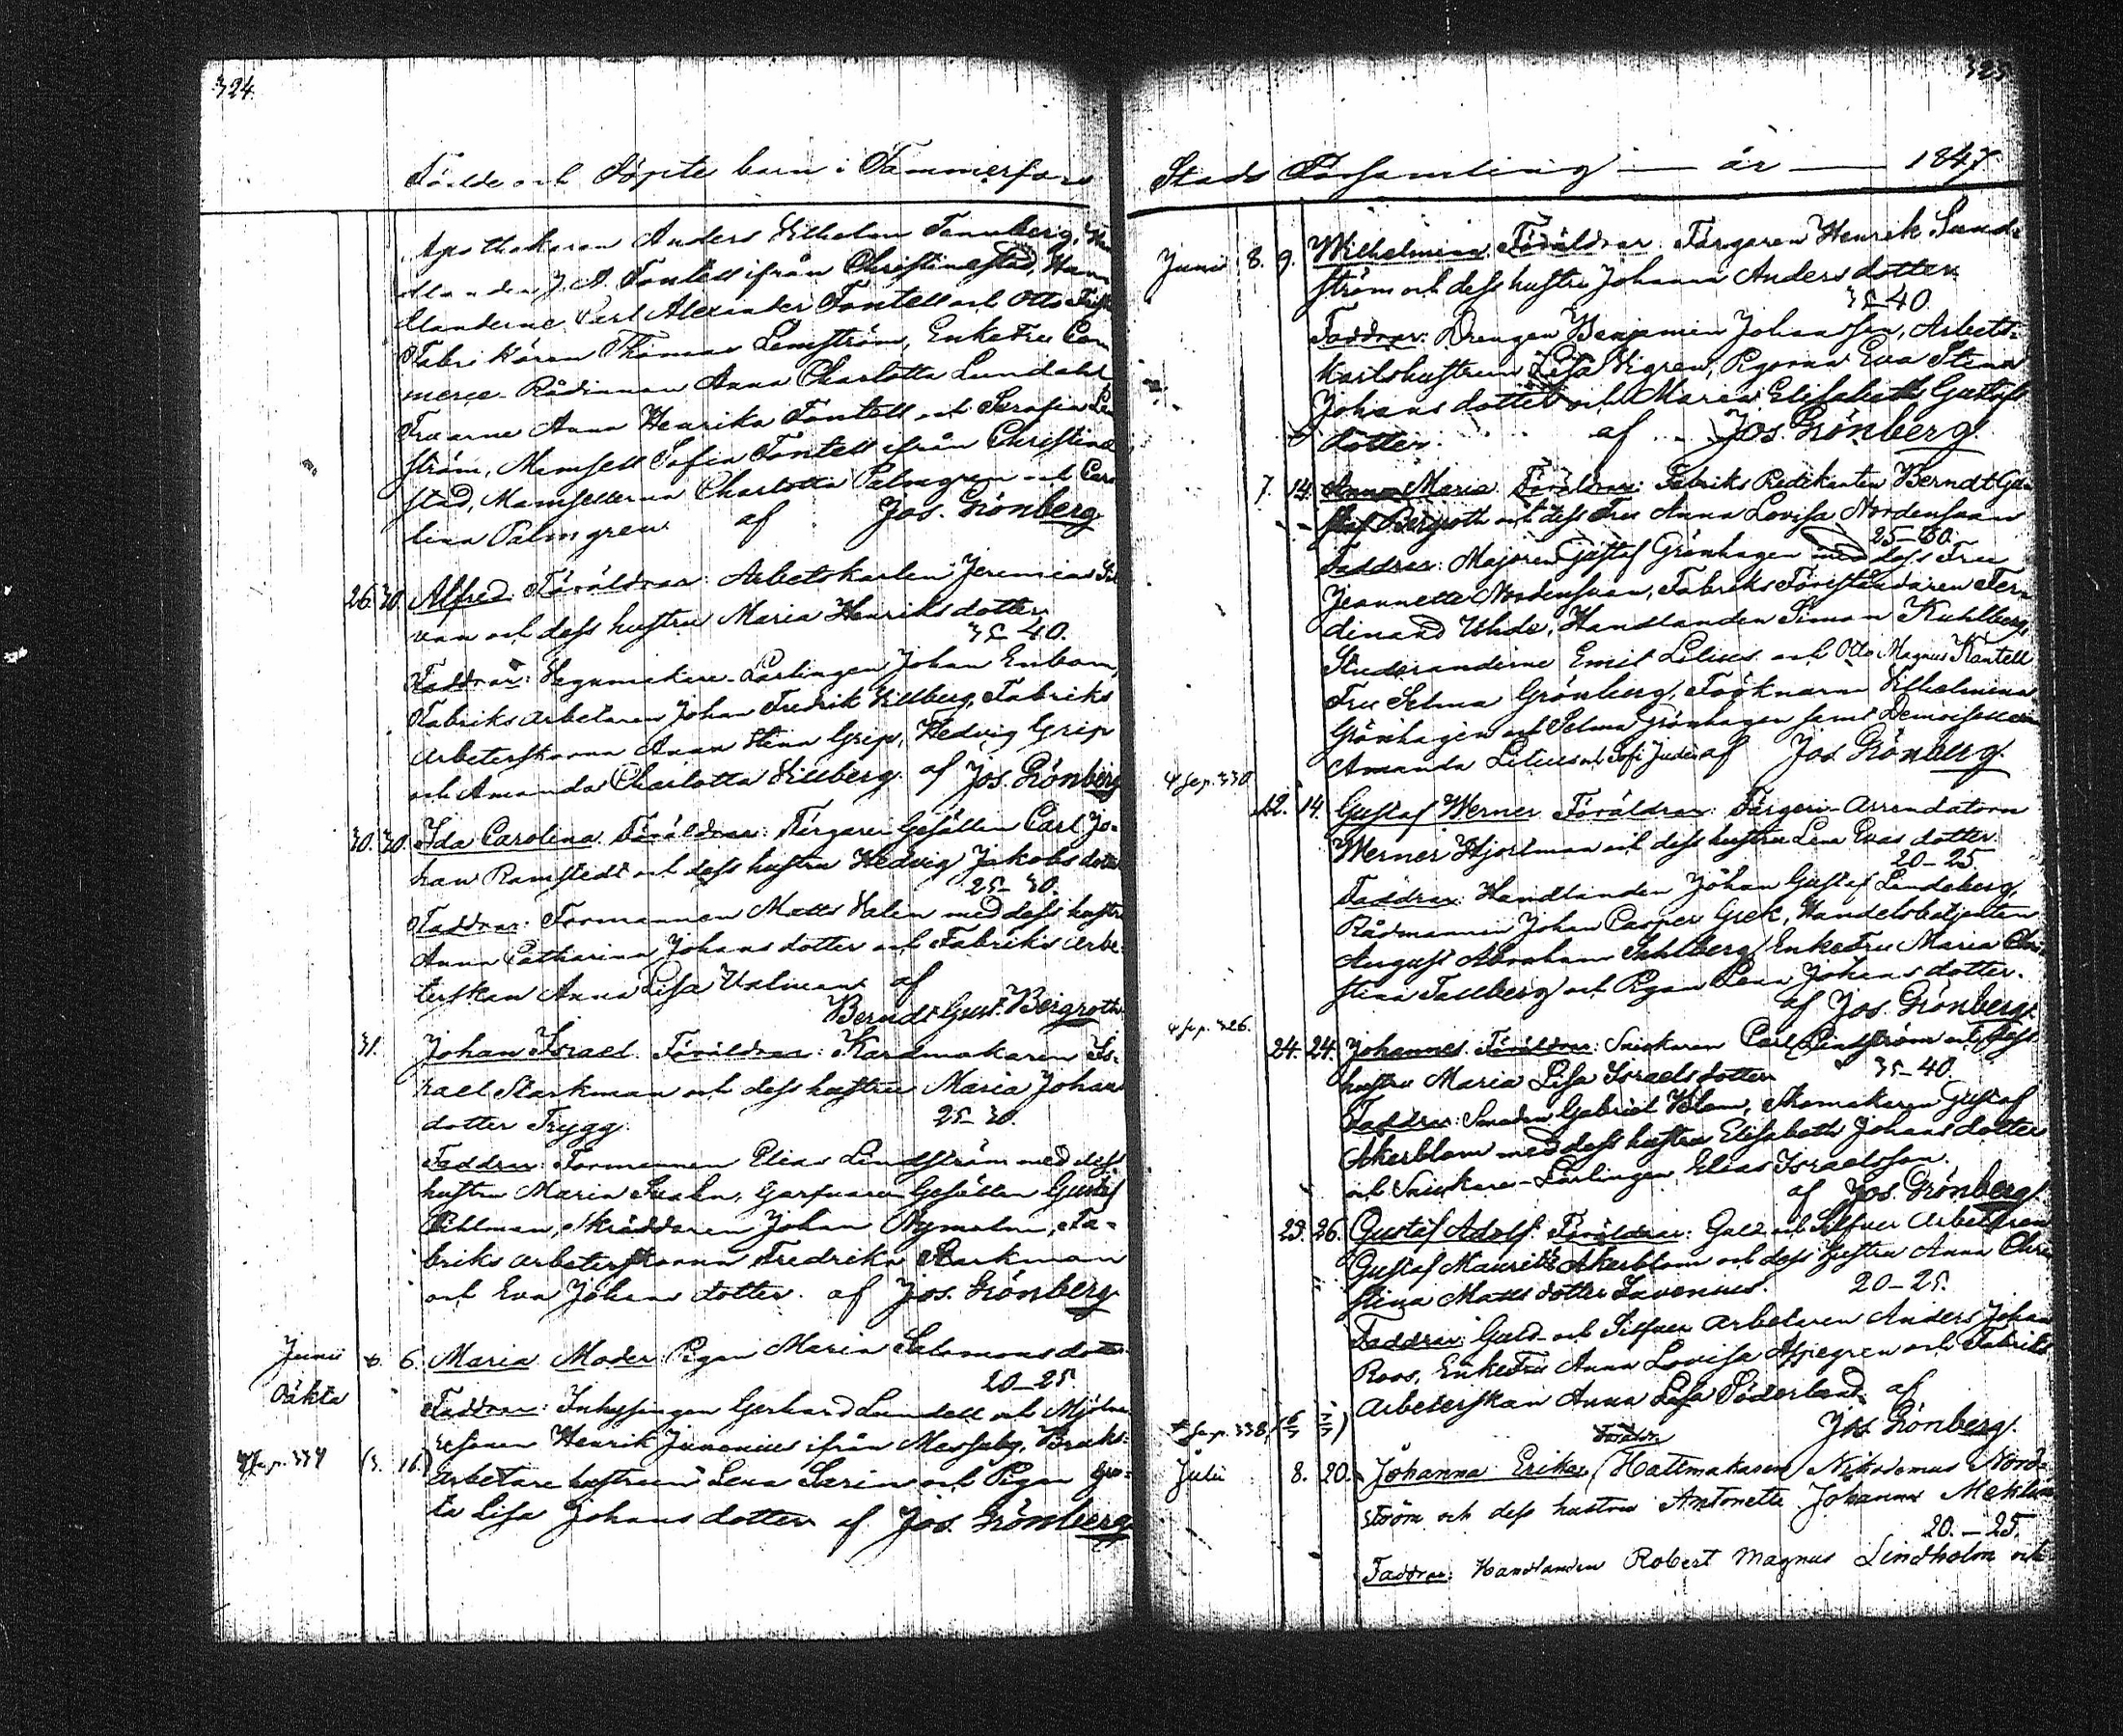 324.
Födde och Döpte barn i Tammerfors
Apothekaren Anders Wilhelm Tennberg,
J. A. Fontell ifrån Christinestad, Han
dlanderne Carl Alexander Fontell och Otto
Fabrikören Thomas Lenström, Enkefru Com
merce-Rådinnan Anna Charlotta Lundahl
Fruarne Anna Henrika Fontell och Serafia Len
ström, Mamsell Sofia Fontell ifrån Christine
stad, Mamsellerna Charlotta Palmgren och Caro
lina Palmgren af Jos. Grönberg
26. 30. Alfred. Föräldrar: Arbetskarlen Jeremias
van och dess hustru Maria Henriksdotter
35-40.
Faddrar: Lärlingen Johan Enbom,
Fabriks arbetaren Johan Fredrik Villberg, Fabriks
arbeterskorna Anna Stina Grip, Hedvig Grip
och Amanda Charlotta Villberg af Jos. Grönberg
30. 30. Ida Carolina. Föräldrar: Färgare Gesällen Carl Jo-
han Ramstedt och dess hustru Hedvig Jakobs dotter
25-30.
Faddrar: Formannen Matts Walen med dess hustru
Anna Catharina Johans dotter och Fabriks arbe-
terskan Anna Lisa Valman af
Berndt Gust. Bergroth
31. Johan Israel. Föräldrar: Kardmakaren Is-
rael Starkman och dess hustru Maria Johans
dotter Trygg. 25-30.
Faddrar: Formannen Elias Lindström med dess
hustru Maria Svahn, Garfvare Gesällen Gustaf
Öhlman, Skräddaren Johan Nymalm, Fa-
briks arbeterskorna Fredrika Starkman
och Eva Johans dotter. af Jos. Grönberg
Junii 6. 6. Maria Moder Pigan Maria Salomons dotter
Oäkta 20-25
Faddrar: Inhysingen Gerhard Lundell och Mjölna
resonen Henrik Juvonius ifrån Messuby, Bruks-
p. 334 (3. 16.) arbetare hustrun Lena Sarin och Pigan Gre-
ta Lisa Johans dotter af Jos. Grönberg
325
Stads Församling — år — 1847
Junii 8. 9. Wilhelmina. Föräldrar: Färgaren Henrik Sund-
ström och dess hustru Johanna Anders dotter
35-40.
Faddrar: Drengen Benjamin Johansson, Arbets-
karlshustrun Lisa Vigren, Pigorna Eva Stina
Johans dotter och Maria Elisabeth Gustafs
dotter. af Jos. Grönberg.
7. 14. Anna Maria. Föräldrar: Fabriks Predikanten Berndt Gu-
staf Bergroth och dess Fru Anna Lovisa Nordensvan
25-30.
Faddrar: Majoren Gustaf Grönhagen med dess Fru
Jeannette Nordensvan, Fabriks Föreståndaren Fer-
dinand Uhde, Handlanden Simon Kuhlberg,
Studeranderne Emil Lilius och Otto Magnus Kantell
Fru Selma Grönberg, Fröknarna Vilhelmina
Grönhagen och Selma Grönhagen samt Demoisellerna
Amanda Lilius och Sofi Judén af Jos. Grönberg.
4 se p. 330
12. 14. Gustaf Werner. Föräldrar: Färgeri Arrendatorn
Werner Hjortman och dess hustru Lena Evas dotter.
20-25
Faddrar: Handlanden Johan Gustaf Lindeberg
Rådmannen Johan Casper Grek, Handelsbetjenten
August Abraham Sahlberg, Enkefru Maria Chri-
stina Tallberg och Pigan Lena Johans dotter.
af Jos. Grönberg.
4 se p. 326.
24. 24. Johannes. Föräldrar: Snickaren Carl Lindström och dess
hustru Maria Lisa Israels dotter 35-40.
Faddrar: Smeden Gabriel Blom, Skomakaren Gustaf
Åkerblom med dess hustru Elisabeth Johans dotter
och Snickare-Lärlingen Elias Israelsson.
af Jos. Grönberg.
25. 26. Gustaf Adolf. Föräldrar: Guld och Silfver arbetaren
Gustaf Mauritz Åkerblom och dess Hustru Anna Chri
stina Matts dotter Savenius. 20-25.
Faddrar: Guld- och Silfver arbetaren Anders Johan
Roos, Enkefru Anna Lovisa Aspegren och Fabriks
Arbeterskan Anna Lisa Söderlund af
se p. 338 Jos. Grönberg.
Julii 8. 20. Johanna Erika, Hattmakaren Nikodemus Nord-
ström och dess hustru Antonette Johanna Mehlin
20.-25.
Faddrar: Handlanden Robert Magnus Lindholm och